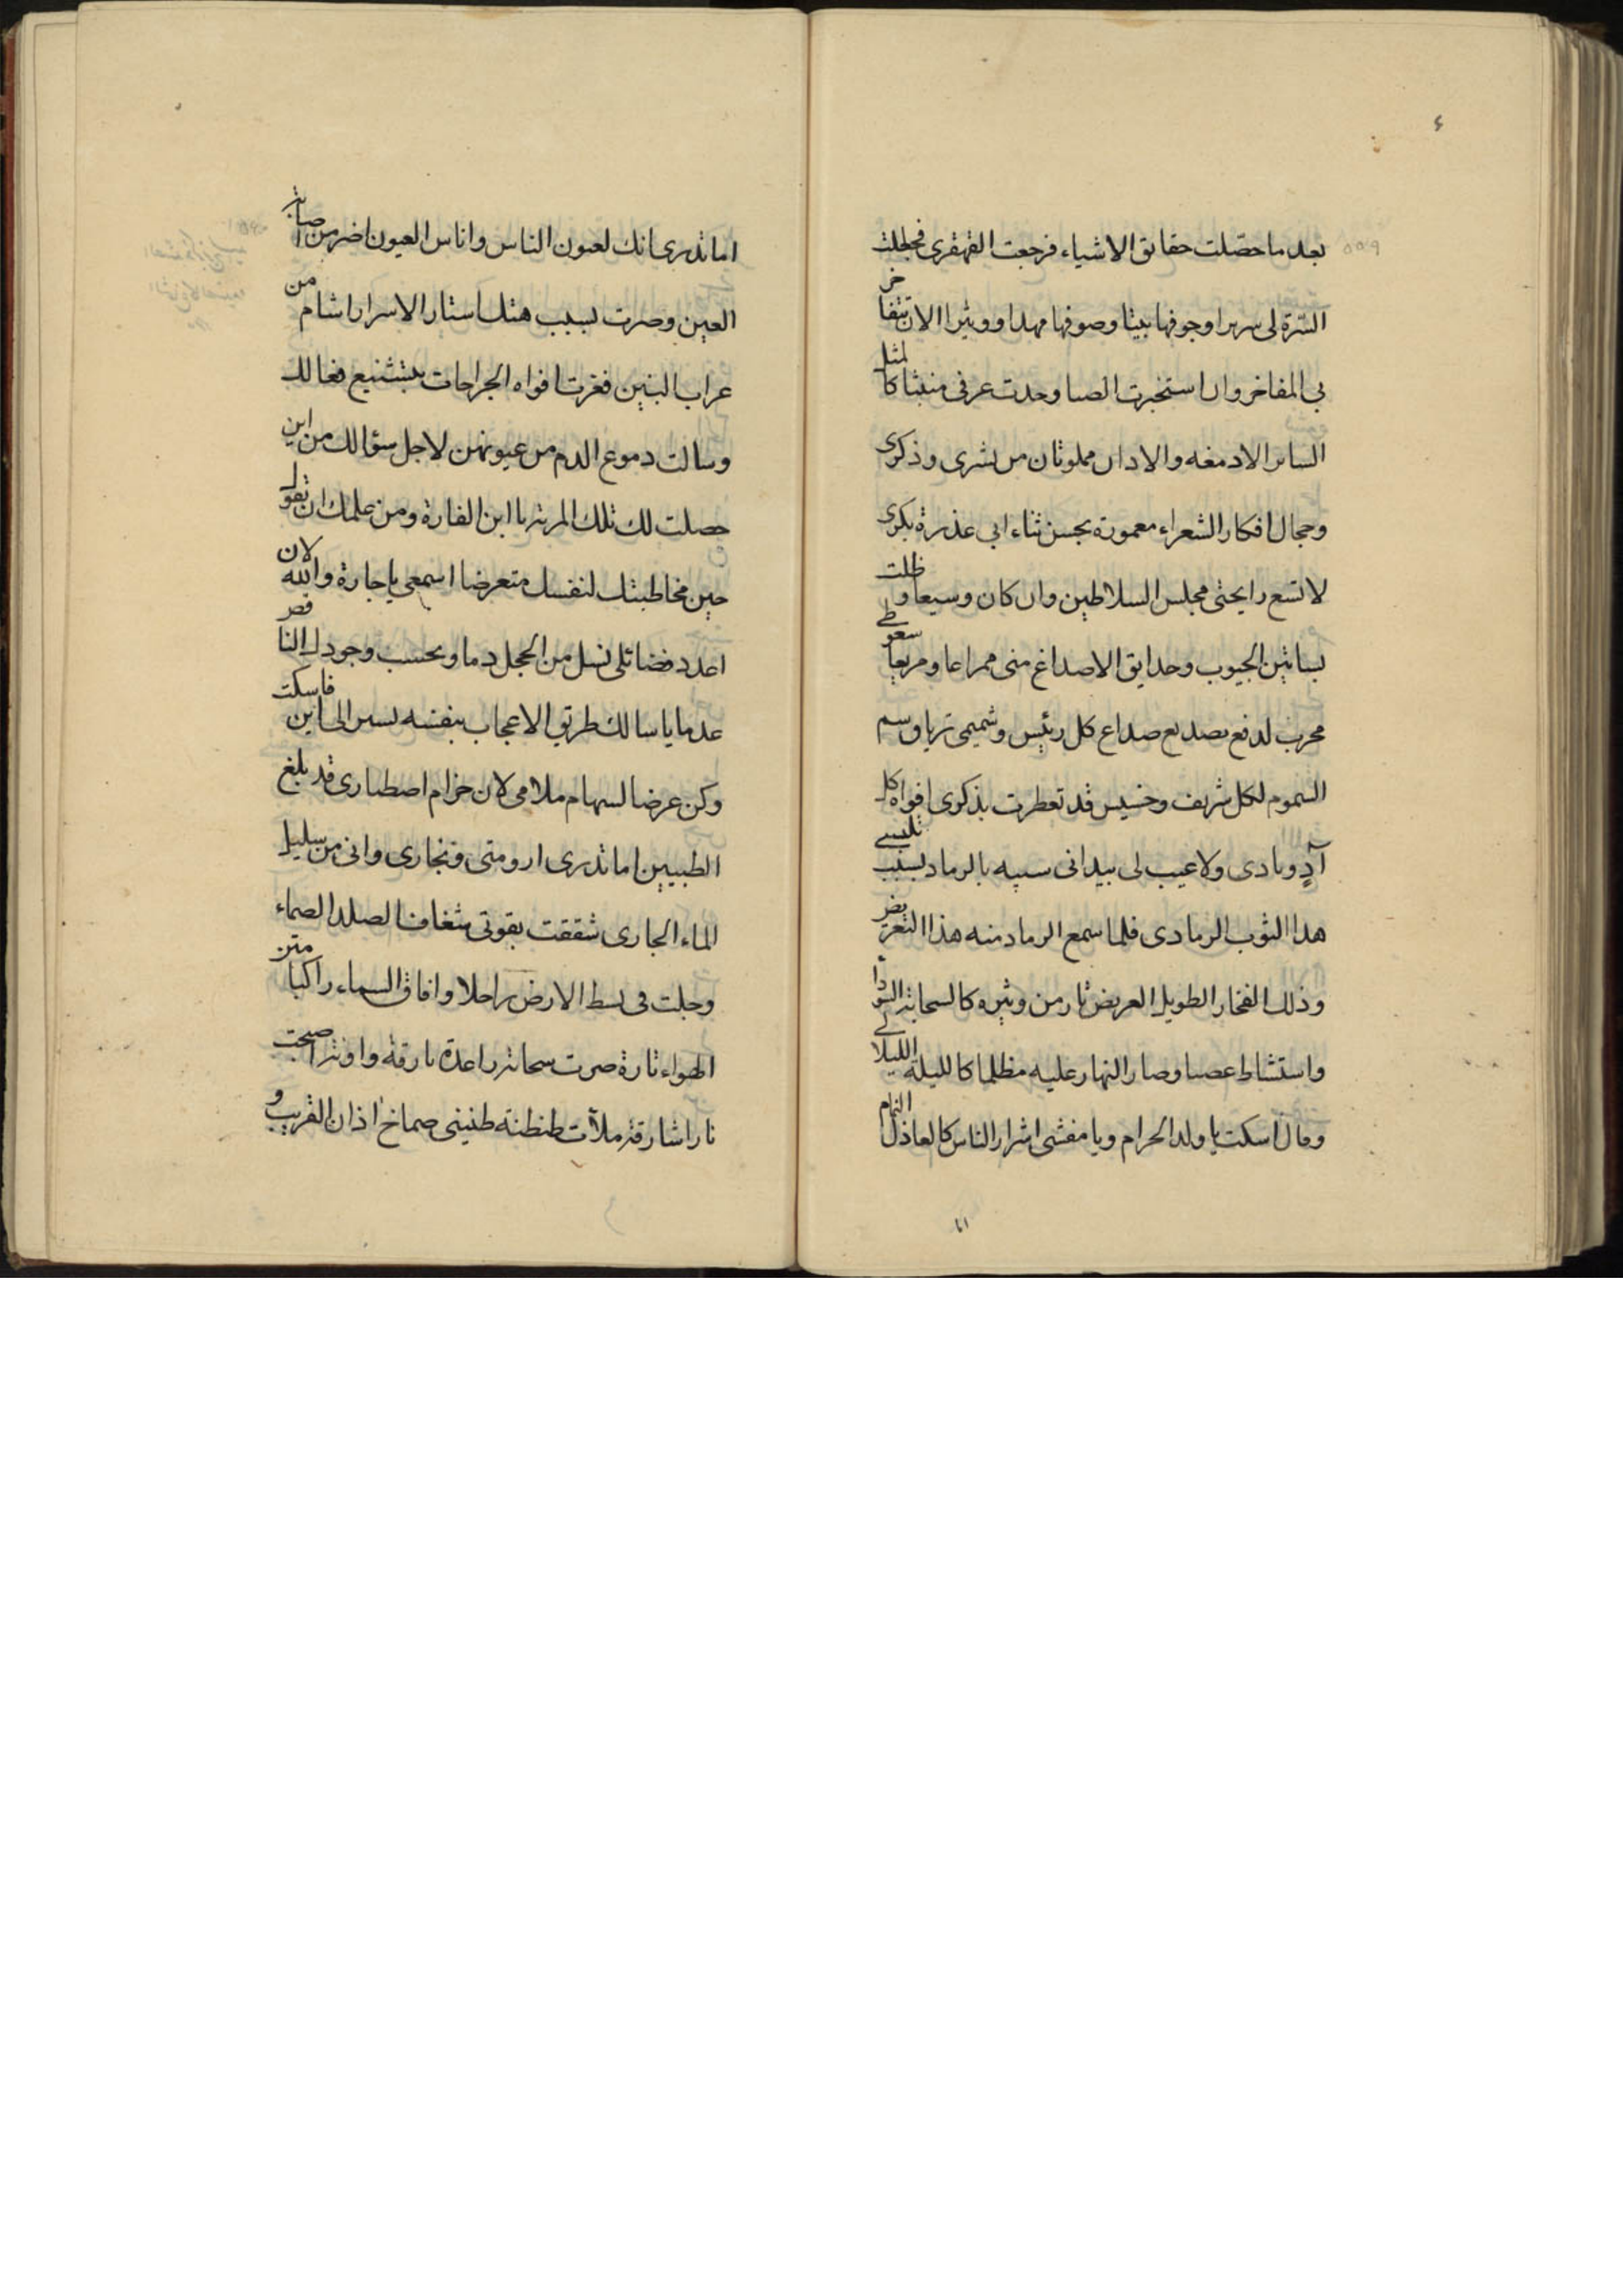 ٤
٥٥٩
بعد ما حصّلت حقايق الاشياء فرجعت القهقرى فجعلت
السّرة لى سريرا وجوفها بيتا وصوفها مهدا ووثيرا الان تتفاخر
بى المفاخر وان استخبرت الصبا وجدت عرفى منبثا كالمثل
السائر الادمغه والاذان مملوتان من نشرى وذكرى
وحجال افكار الشعراء معمورة بحسن ثناء ابى عذرة بكرى
لا تسع رايحتى مجلس السلاطين وان كان وسيعا وظلت
بساتين الجيوب وحدايق الاصداغ منى ممراعا ومريعا سعوطى
مجرب لدفع تصديع صداع كل رئيس وشميمى ترياق سم
السموم لكل شريف وخسيس قد تعطرت بذكرى افواه كل
آدٍ وبادى ولا عيب لى بيد انى سيه بالرماد بسبب تلبسى
هذا الثوب الرمادى فلما سمع الرماد منه هذا التعريض
وذلك الفخار الطويل العريض ثار من وثيره كالسحابة السوداء
واستشاط غصبا وصار النهار عليه مظلما كالليلة الليلاء
وقال اسكت يا ولد الحرام ويا مفشى اشرار الناس كالعاذل النمام
اما تدرى انك لعيون الناس واناس العيون اضر من اصابة
العين وصرت بسبب هتك استار الاسرار اشام من
غراب البين ففغرت افواه الجراحات بتشنيع فعالك
وسالت دموع الدم من عيونهن لاجل سؤالك من اين
حصلت لك تلك المرتبة يا ابن الفارة ومن علمك ان تقول
حين مخاطبتك لنفسك متعرضا اسمعى يا جارة والله لان
اعدد فضائلى تسل من الخجل دما وتحسب وجودك الناقص
عدما يا سالك طريق الاعجاب بنفسه تسير الى اين فاسكت
وكن غرضا لسهام ملامى لان حزام اصطبارى قد بلغ
الطبيين اما تدرى ارومتى ونجارى وانى من سليل
الماء الجارى شققت بقوتى شغاف الصلد الصماء
وجلت فى بسط الارض راجلا وافاق السماء راكبا متن
الهواء تارة صرت سحابة راعدة بارقة واونة اصبحت
نارا شارقة ملأت طنطنة طنينى صماخ اذان القريب و